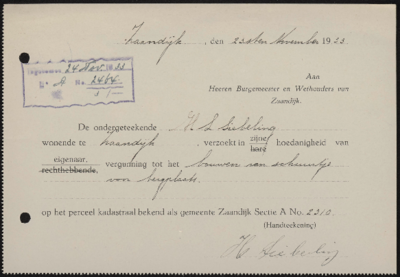 Zaandijk, den 23sten November 1933
Ingekomen 24 Nov. 1933
No. 2464
Aan
Heeren Burgemeester en Wethouders van
Zaandijk.
De ondergeteekende H. S. Siebeling
wonende te Zaandijk, verzoekt in zijne hare hoedanigheid van
eigenaar, rechthebbende, vergunning tot het bouwen van schuurtje
voor bergplaats.
op het perceel kadastraal bekend als gemeente Zaandijk Sectie A No. 2310
(Handteekening)
H. Siebeling